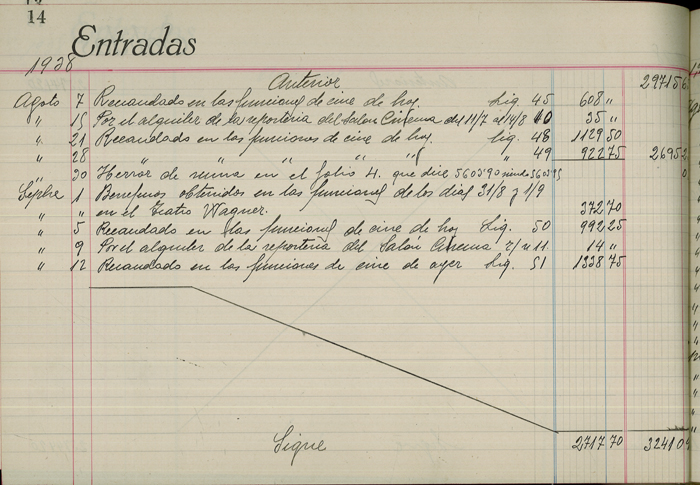 14
Entradas
1938
Anterior 297156
Agoto 7 Recaudado en las funciones de cine de hoy. Liq. 45 608 "
" 15 Por el alquiler de la reposteria del Salon Cinema del 11/7 al 14/8 40 35 "
" 21 Recaudado en las funciones de cine de hoy. Liq. 48 1129 50
" 28 " " " " " 49 922 75 26952
" 30 Herror de suma en el folio 4. que dice 560590 siendo 560595 0
Sepbre 1 Benefinos obtenidos en las funciones de los dias 31/8 y 1/9
" " en el Teatro Wagner. 372 70
" 5 Recaudado en las funciones de cine de hoy Liq. 50 992 25
" 9 Por el alquiler de la reposteria del Salón Cinema r/ n 11. 14 "
" 12 Recaudado en las funciones de cine de ayer Liq. 51 1338 75
Sigue 2717 70 32410